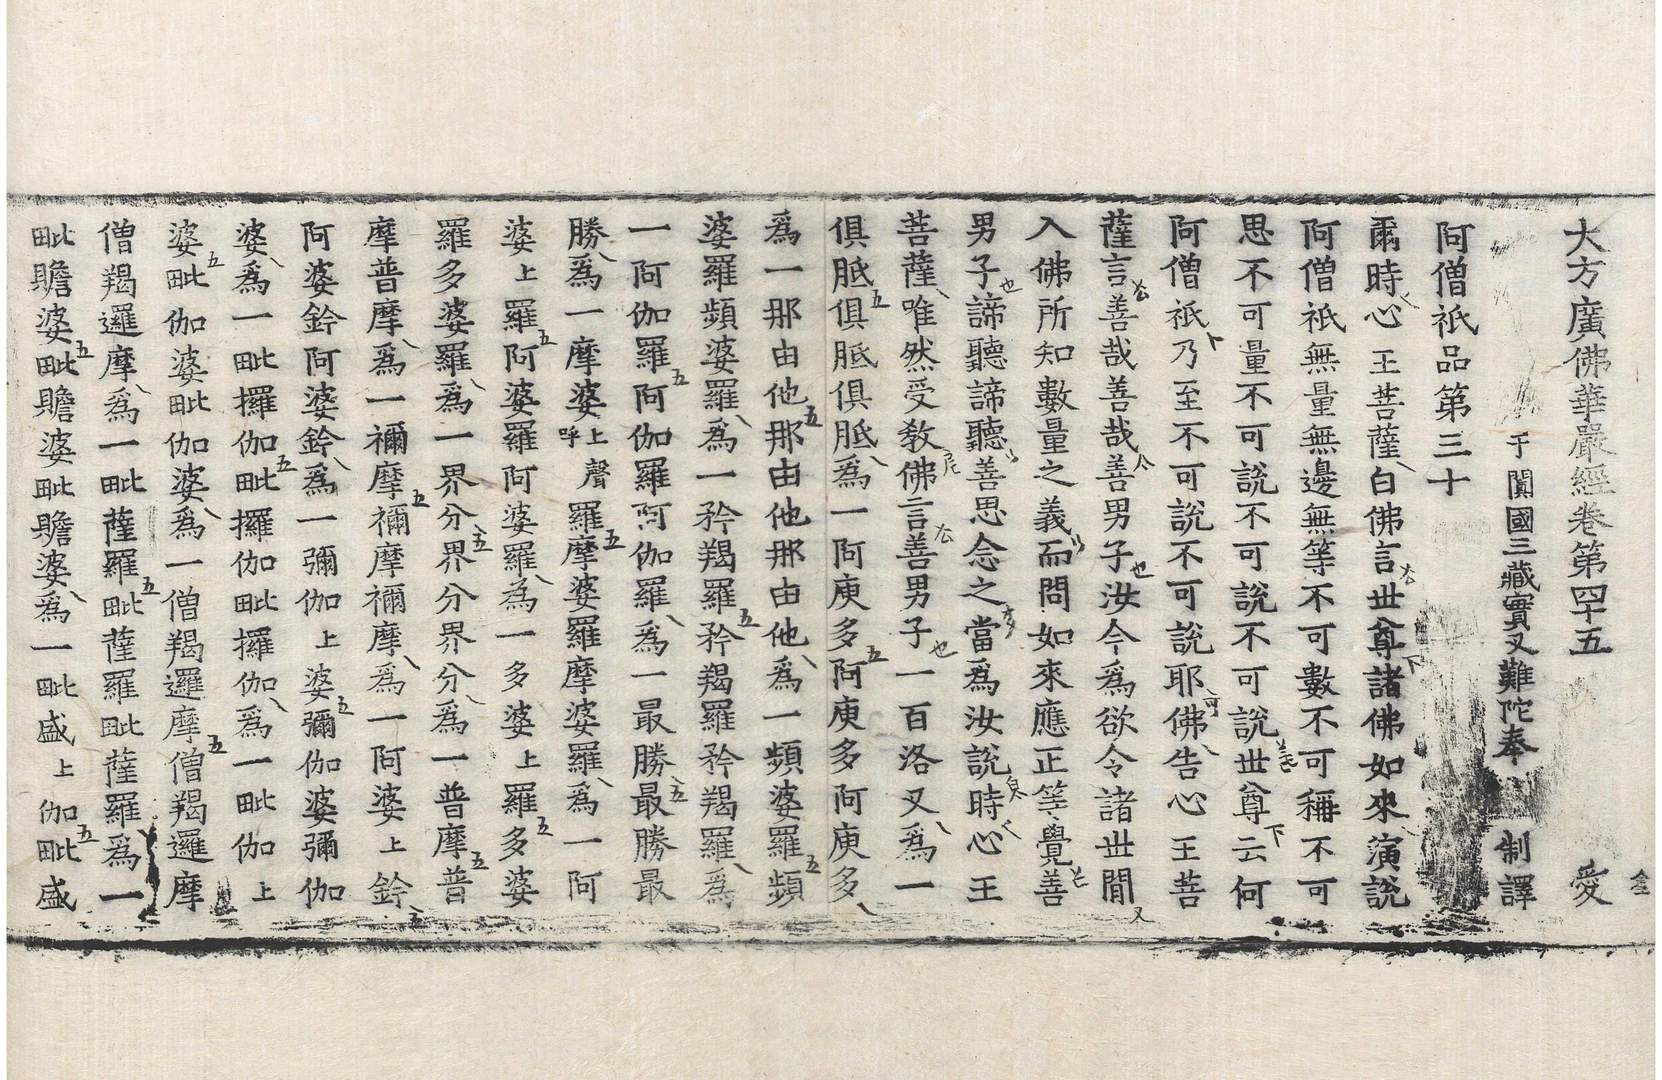 大方廣佛華嚴經卷第四十五 愛
于闐國三藏實叉難陀奉 制譯
阿僧祇品第三十
爾時心王菩薩白佛言世尊諸佛如來演說
阿僧祇無量無邊無等不可數不可稱不可
思不可量不可說不可說不可說世尊云何
阿僧祇乃至不可說不可說耶佛告心王菩
薩言善哉善哉善男子汝今爲欲令諸世閒
入佛所知數量之義而問如來應正等覺善
男子諦聽諦聽善思念之當爲汝說時心王
菩薩唯然受教佛言善男子一百洛叉爲一
俱胝俱胝俱胝爲一阿庾多阿庾多阿庾多
爲一那由他那由他那由他爲一頻婆羅頻
婆羅頻婆羅爲一矜羯羅矜羯羅矜羯羅爲
一阿伽羅阿伽羅阿伽羅爲一最勝最勝最
勝爲一摩婆上聲呼羅摩婆羅摩婆羅爲一阿
婆上羅阿婆羅阿婆羅爲一多婆上羅多婆
羅多婆羅爲一界分界分界分爲一普摩普
摩普摩爲一禰摩禰摩禰摩爲一阿婆上鈐
阿婆鈐阿婆鈐爲一彌伽上婆彌伽婆彌伽
婆爲一毗攞伽毗攞伽毗攞伽爲一毗伽上
婆毗伽婆毗伽婆爲一僧羯邏摩僧羯邏摩
僧羯邏摩爲一毗薩羅毗薩羅毗薩羅爲一
毗贍婆毗贍婆毗贍婆爲一毗盛上伽毗盛